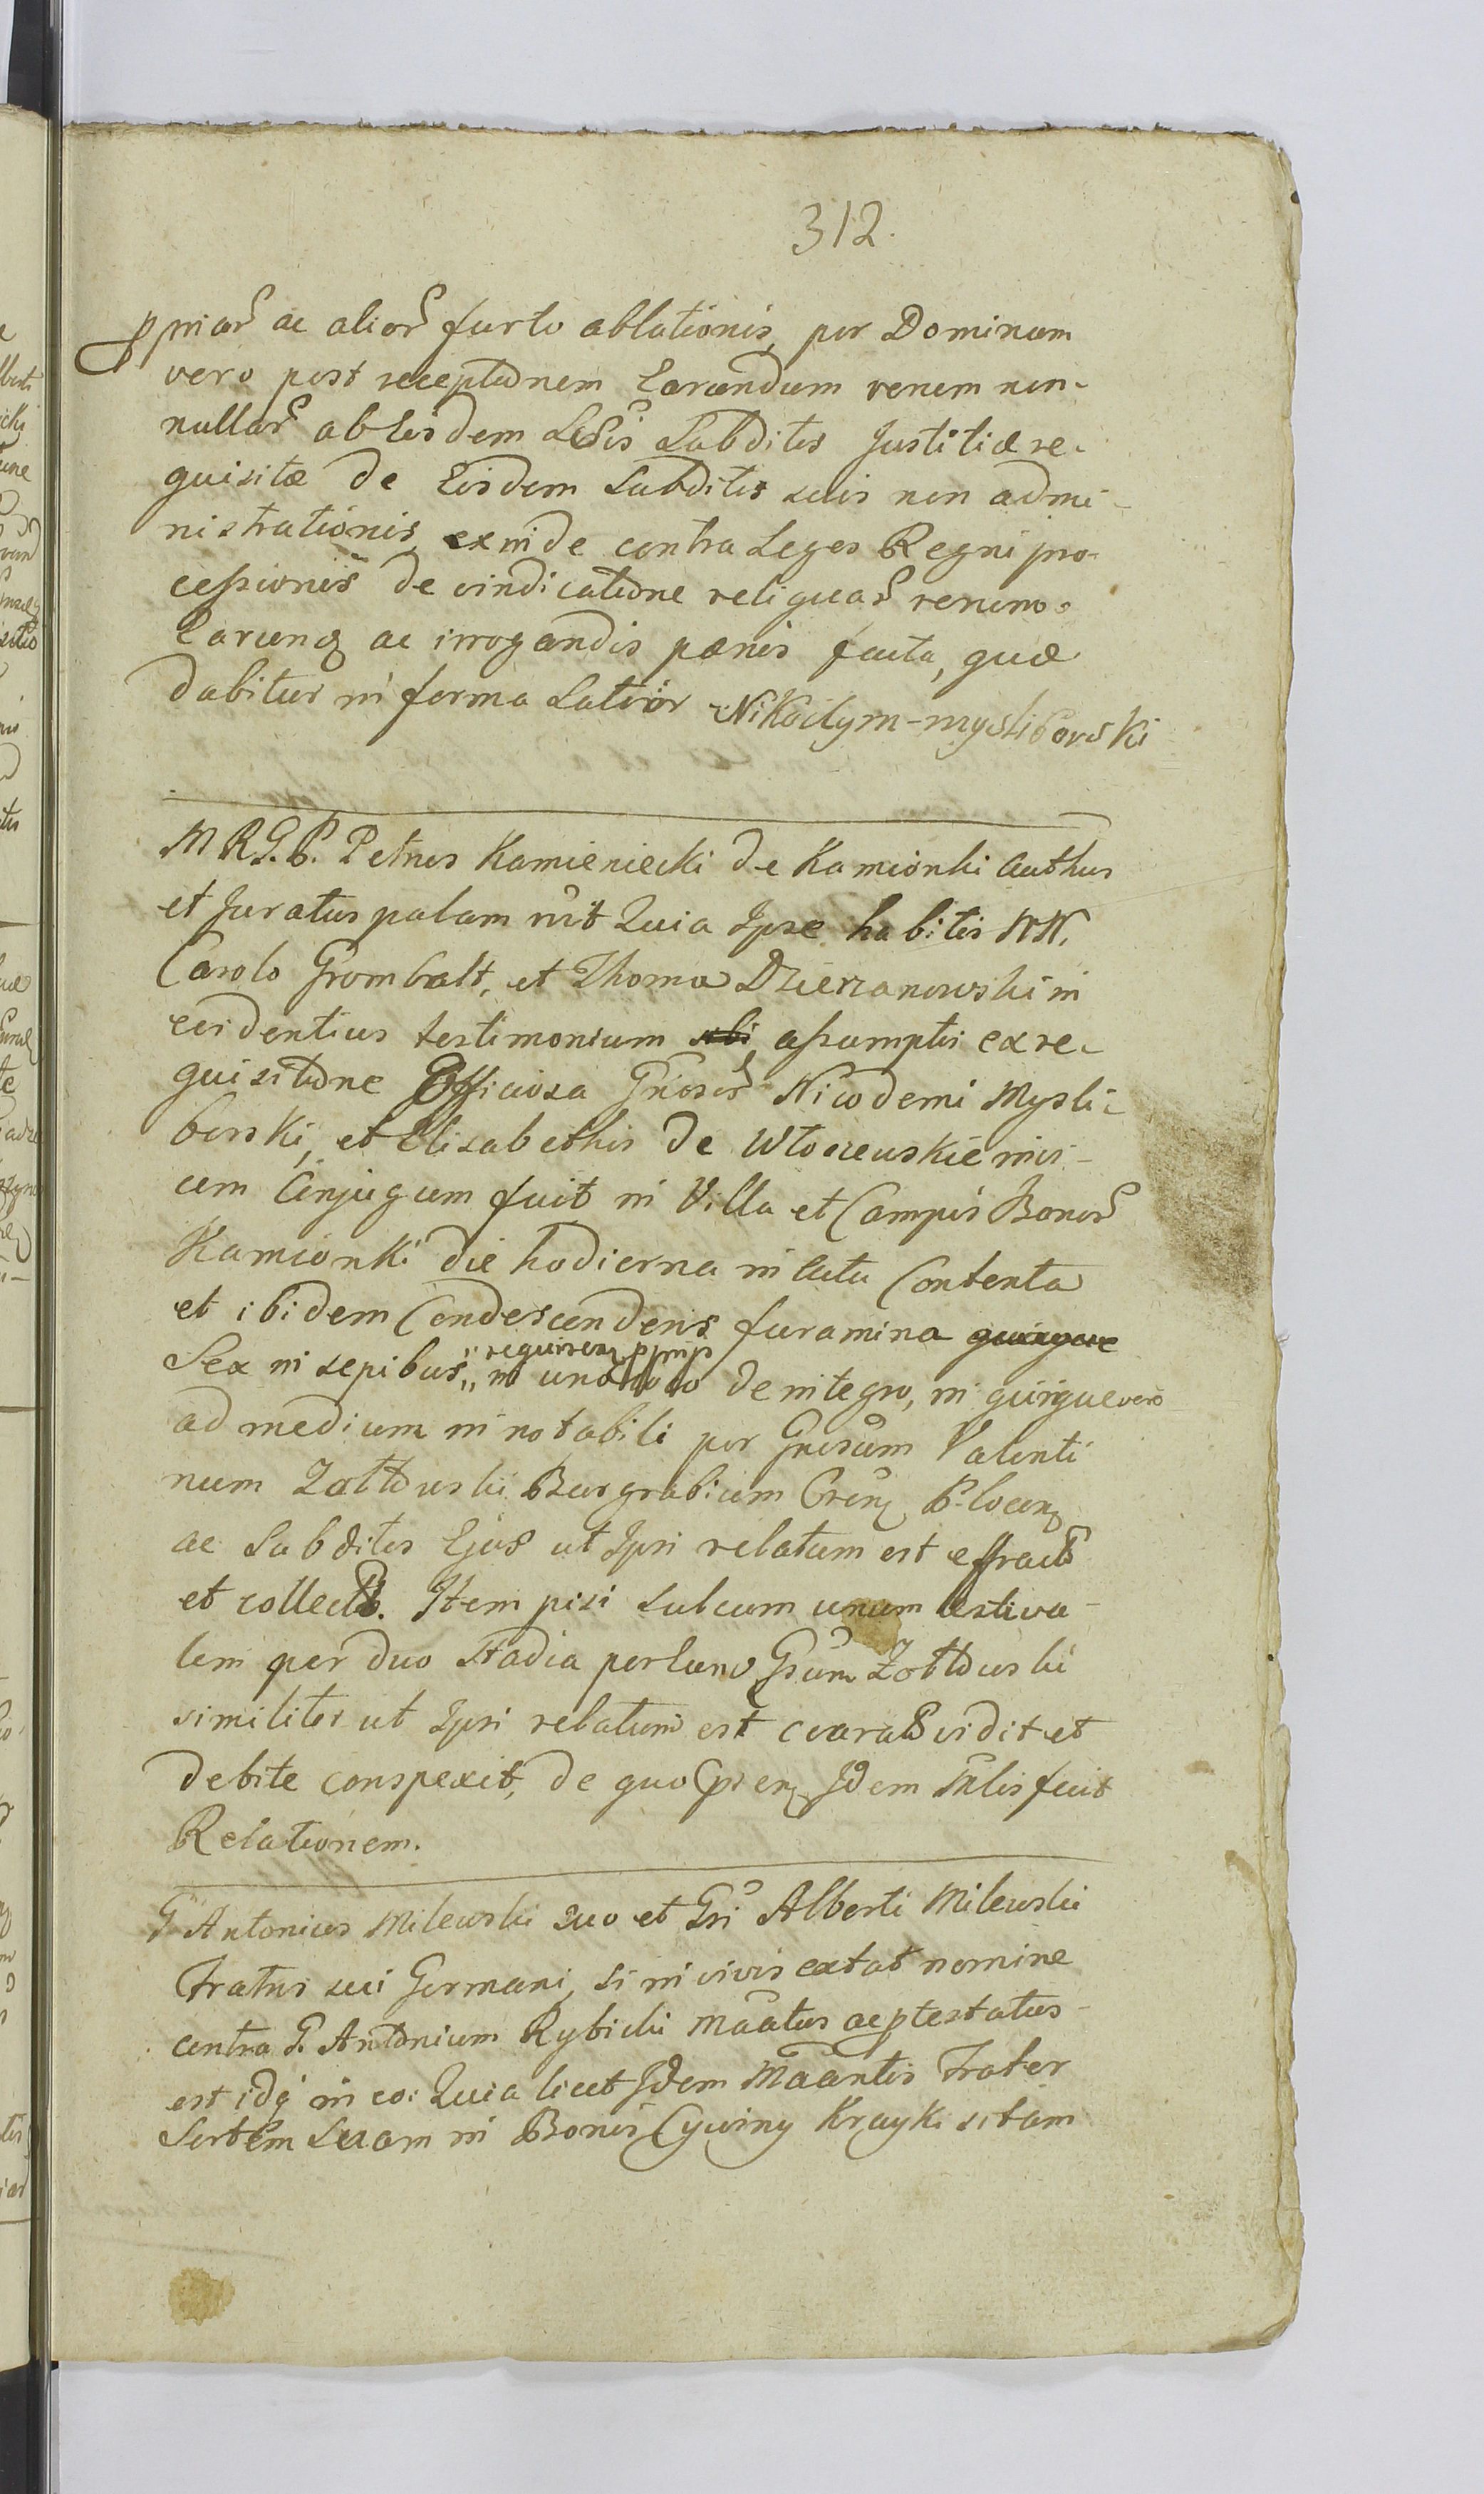 312.
ppriar ac alior furto ablationis, per Dominum
vero post receptionem Earundem rerum non-
nullar ab Eisdem Lesis Subditis Justitiæ re-
quisitæ de Eisdem Subditis suis non admi-
nistrationis, exinde contra Leges Regni pro-
cessionis de vindicatione reliquar rerum
earunq ac irrogandis pœnis facta, quæ
dabitur in forma Latior Nikodym-mysliborski
M R G. P. Petrus Kamieniecki de Kamionki Authus
et Juratus palam rũt Quia Ipse habitis NN.
Carolo Grombalt, et Thoma Dzierzanowski in
evidentius testimonium sibi assumptis ex re-
quisitione Officiosa Gñosor Nicodemi Mysli-
borski, et Elisabethis de Wtoczewskie invi-
cem Conjugum fuit in Villa et Campis Bonor
Kamionki die hodierna in Actu Contenta
et ibidem Condescendens furamina quinque
Sex in sepibus,, in uno loco de integro, in quinque vero
ad medium in notabili per Gnosum Valenti
num Zottowski Burgrabium Cren P-locen
ac Subditos Ejus ut Ipsi relatum est effract
et collect. Item pisi sulcum unum æstiva-
lem per duo stadia per eund Gsum Zottowski
similiter ut Ipsi relatum est evarat vidit et
debite conspexit, de quo psen Idem Mlis fecit
Relationem.
G Antonius Milewski suo et Gsi Alberti Milewski
Fratris sui Germani, si in vivis extat nomine
contra G. Antonium Rybicki Maatus ac ptestatus
est idq in eo: Quia licet Idem Maantis Frater
Sortem Suam in Bonis Cywiny Krayki sitam